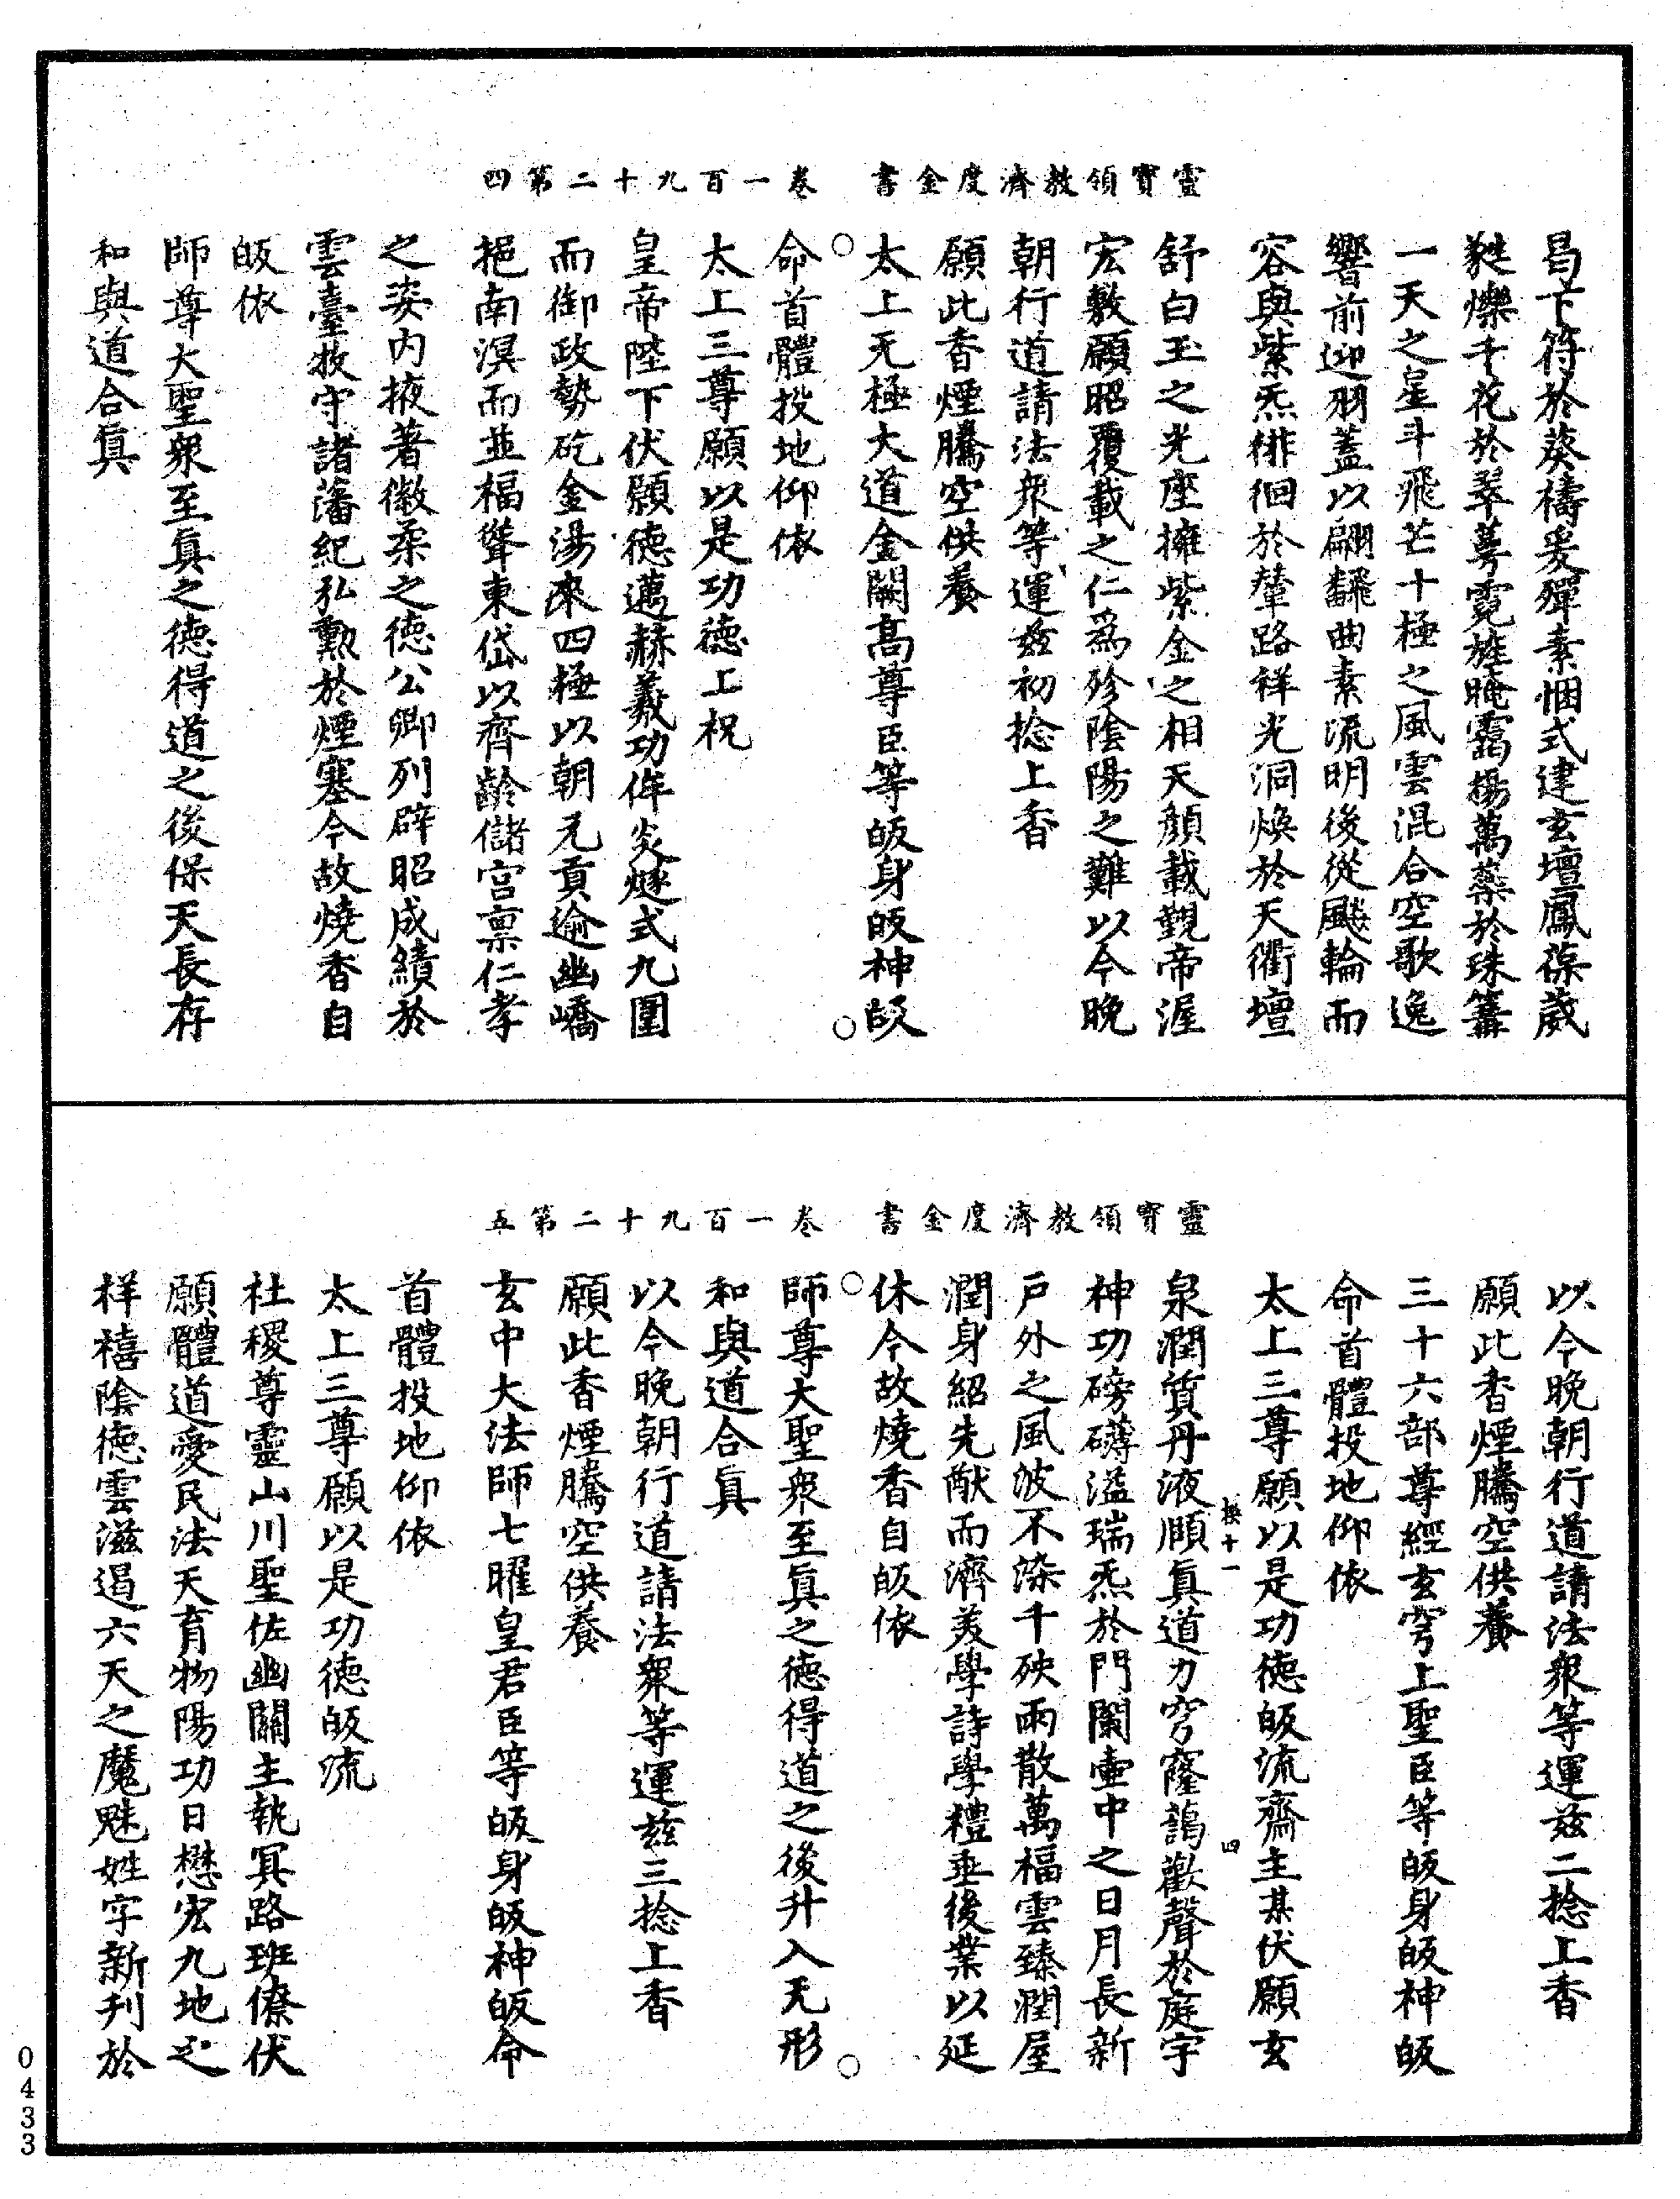 靈寶領教濟度金書　卷一百九十二第四
昌下符於葵禱爰殫素悃式建玄壇鳳葆葳
蕤爍千花於翠萼霓旌晻靄揚萬蘂於珠籌
一天之星斗飛芒十極之風雲混合空歌逸
響前迎羽蓋以翩飜曲素流明後從飈輪而
容與紫炁徘徊於輦路祥光洞煥於天衢壇
舒白玉之光座擁紫金之相天顏載覲帝渥
宏敷願昭覆載之仁爲殄陰陽之難以今晚
朝行道請法衆等運兹初捻上香
願此香煙騰空供養
太上无極大道金闕高尊臣等皈身皈神皈
命首體投地仰依
太上三尊願以是功德上祝
皇帝陛下伏願德邁赫羲功侔炎燧式九圍
而御政勢矻金湯來四極以朝元貢逾幽嶠
挹南溟而並福聳東岱以齊齡儲宮禀仁孝
之姿內掖著徽柔之德公卿列辟昭成績於
雲臺牧守諸藩紀弘勲於煙塞今故燒香自
皈依
師尊大聖衆至眞之德得道之後保天長存
和與道合眞
靈寶領教濟度金書　卷一百九十二第五
以今晚朝行道請法衆等運兹二捻上香
願此香煙騰空供養
三十六部尊經玄穹上聖臣等皈身皈神皈
命首體投地仰依
太上三尊願以是功德皈流齋主某伏願玄
扶十一　四
泉潤質丹液順眞道力穹窿藹歡聲於庭宇
神功磅礴溢瑞炁於門闌壷中之日月長新
戶外之風波不染千殃雨散萬福雲臻潤屋
潤身紹先猷而濟美學詩學禮垂後業以延
休今故燒香自皈依
師尊大聖衆至眞之德得道之後升入无形
和與道合眞
以今晚朝行道請法衆等運兹三捻上香
願此香煙騰空供養
玄中大法師七曜皇君臣等皈身皈神皈命
首體投地仰依
太上三尊願以是功德皈流
社稷尊靈山川聖佐幽關主執冥路班僚伏
願體道愛民法天育物陽功日懋宏九地之
祥禧陰德雲滋遏六天之魔魅姓字新刋於
0433